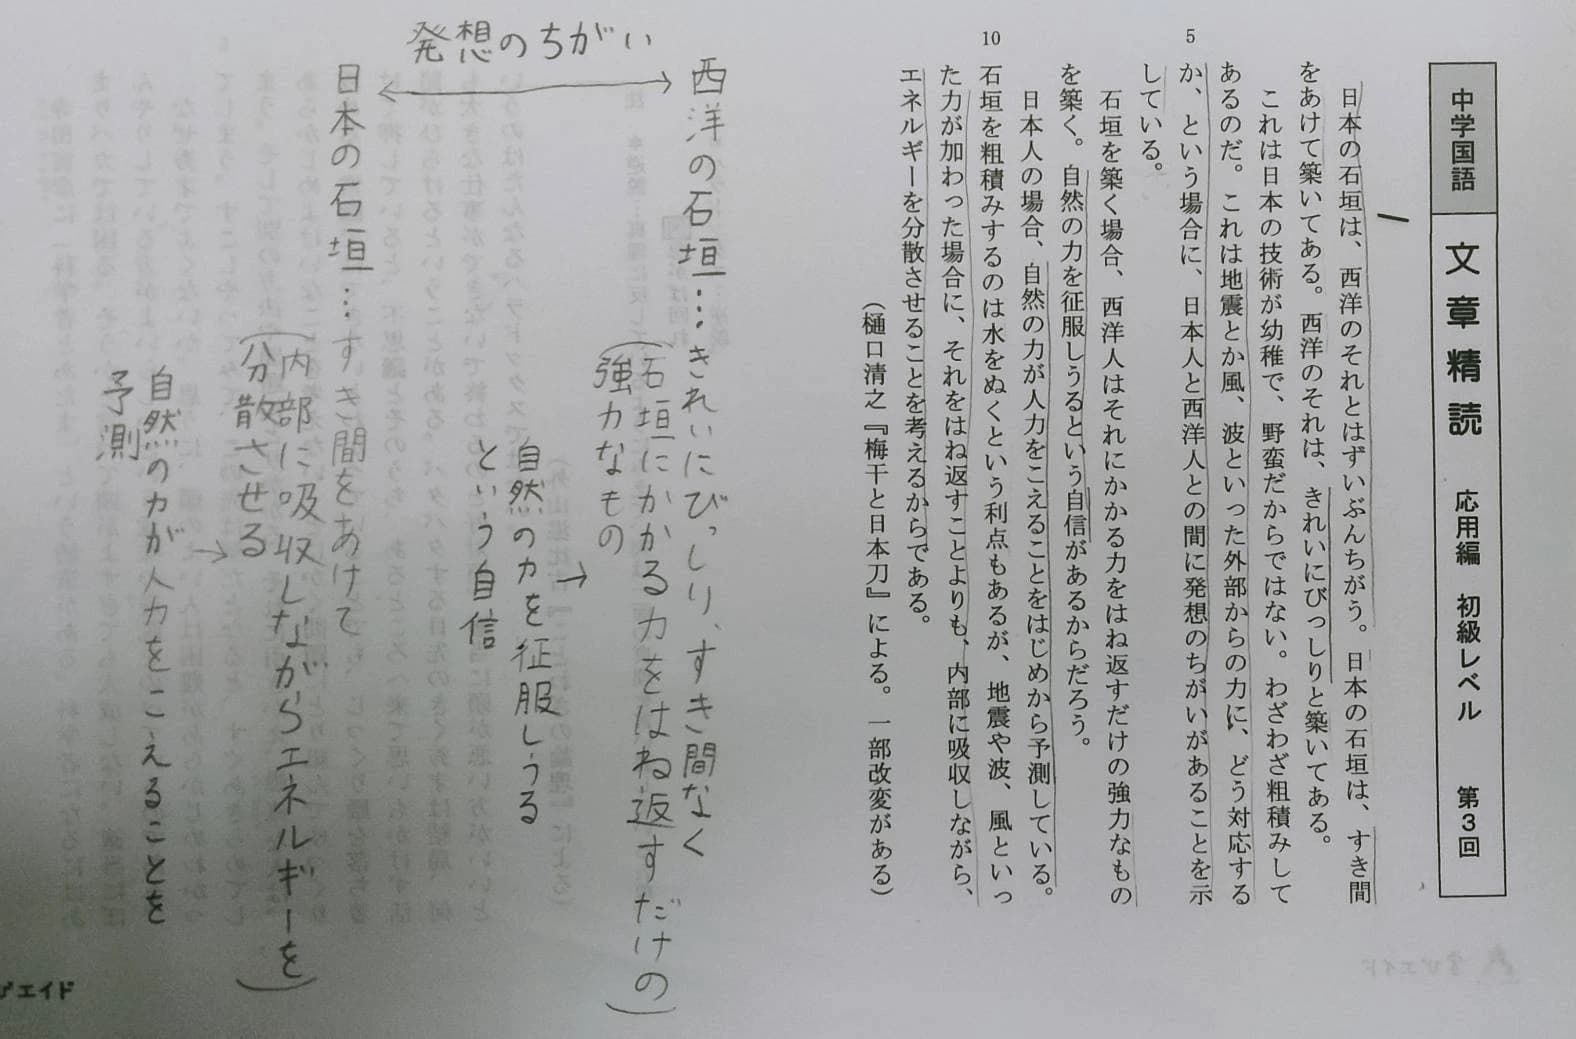 中学国語 文章精読 応用編 初級レベル 第3回
日本の石垣は、西洋のそれとはずいぶんちがう。日本の石垣は、すき間
をあけて築いてある。西洋のそれは、きれいにびっしりと築いてある。
これは日本の技術が幼稚で、野蛮だからではない。わざわざ粗積みして
あるのだ。これは地震とか風、波といった外部からの力に、どう対応する
5
か、という場合に、日本人と西洋人との間に発想のちがいがあることを示
している。
石垣を築く場合、西洋人はそれにかかる力をはね返すだけの強力なもの
を築く。自然の力を征服しうるという自信があるからだろう。
日本人の場合、自然の力が人力をこえることをはじめから予測している。
10
石垣を粗積みするのは水をぬくという利点もあるが、地震や波、風といっ
た力が加わった場合に、それをはね返すことよりも、内部に吸収しながら、
エネルギーを分散させることを考えるからである。
(樋口清之『梅干と日本刀』による。一部改変がある)
西洋の石垣…きれいにびっしり、すき間なく
(石垣にかかる力をはね返すだけの
強力なもの)
自然の力を征服しうる
という自信→
発想のちがい
日本の石垣…すき間をあけて
(内部に吸収しながらエネルギーを
分散させる)
自然の力が人力をこえることを
予測→
びエイド